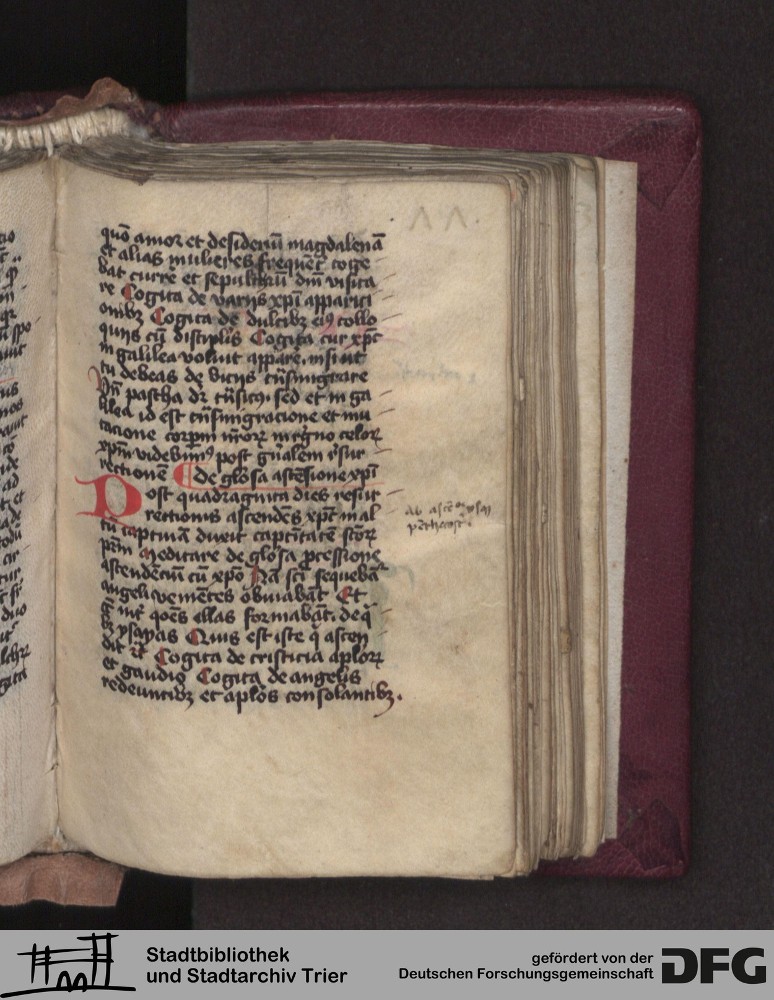 quō amor et desideriū magdalenā
et alias mulieres frequēt᷑ coge
bat curr̄e et sepulchrū dn̄i visita
re Cogita de varijs xp̄i apparici
onibꝫ Cogita de dulcibꝫ eiꝰ collo
quijs cū discip̄lis Cogita cur xp̄c
in galilea voluit appar̄e. nisi ut
tu debeas de vicijs tn̄smigrare
pascha dr̄ tn̄sitꝰ sed et in ga
lilea id est tn̄smigracione et mu
tacione corpꝝ nr̄oꝝ in regno celoꝝ
xp̄m videbimꝰ post gn̄alem r̄sur
rectionē de glōsa ascēsione xp̄i
Post quadraginta dies resur
rectionis ascendēs xp̄c in al
tū captiuā duxit captiuitatē
pr̄m Meditare de glōsa ꝓcessione
ascendēciū cū xp̄o Nā sc̄i sequebāt᷑
angeli veniētes obuiabāt Et
ellas formabāt. de q̄
bꝫ ysayas Quis est iste q̄ ascen
dit ꝛc̄ Cogita de tristicia ap̄loꝝ
et gaudio Cogita de angelis
redeuntibꝫ et ap̄los consolantibꝫ.
Stadtbibliothek
und Stadtarchiv Trier
gefördert von der
Deutschen Forschungsgemeinschaft
DFG